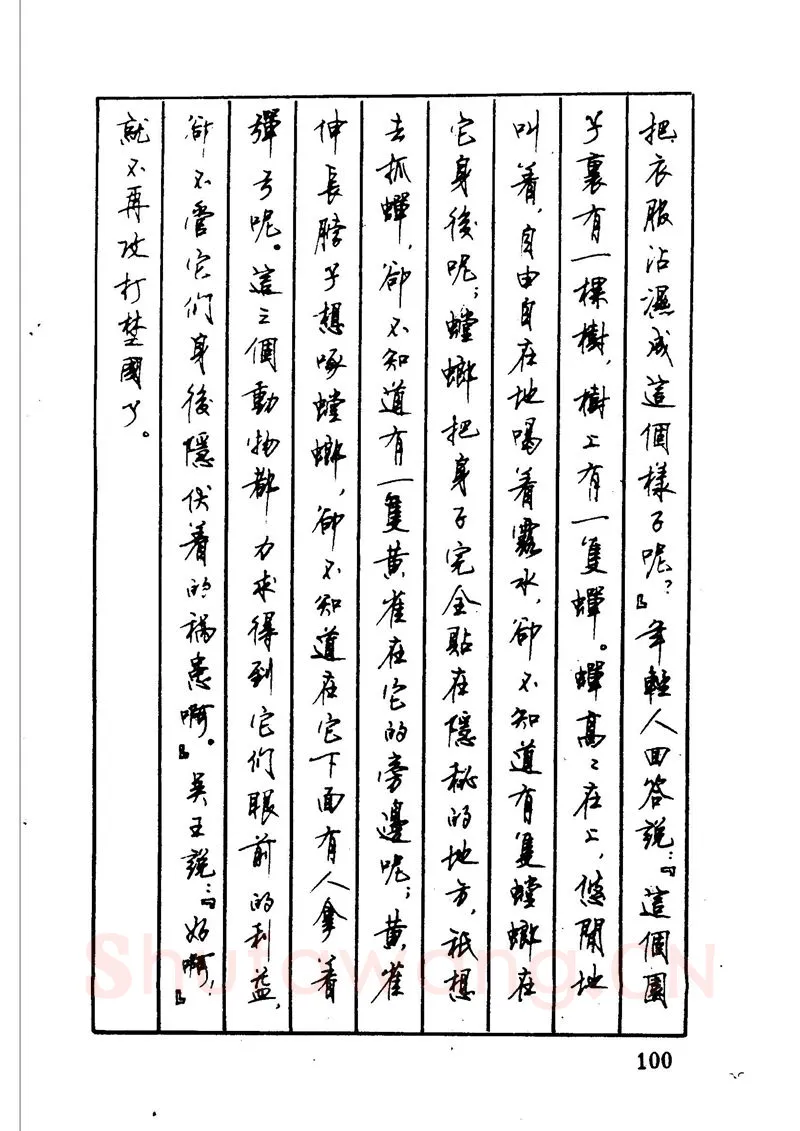 把衣服沾濕成這個樣子呢?』年輕人回答説:『這個園
子裏有一棵樹,樹上有一隻蟬。蟬高〻在上,悠閒地
叫着,自由自在地喝着露水,卻不知道有隻螳螂在
它身後呢;螳螂把身子完全貼在隱秘的地方,衹想
去抓蟬,卻不知道有一隻黄雀在它的旁邊呢;黄雀
伸長脖子想啄螳螂,卻不知道在它下面有人拿着
彈弓呢。這三個動物都力求得到它們眼前的利益,
卻不管它们身後隱伏着的禍患啊。』吴王説:『好啊!』
就不再攻打楚國了。
100
Shufawang.CN